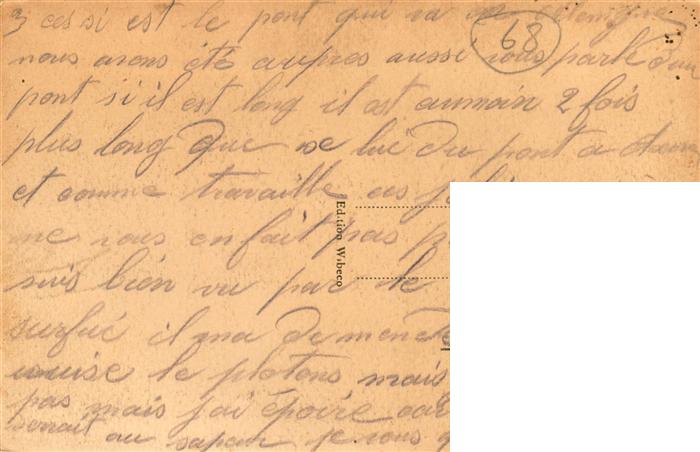 3 ces si est le pont qui va
68
nous avons été aupres aussi vous parlé d'un
pont si il est long il est aumoin 2 fois
plus long que se lui du pont a
et comme travaille
me vous en fait pas
suis bien vu par le
il ma demende
le plotons mais
pas mais j'ai époire
serrait au sapeur je vous
Edition Wibeco